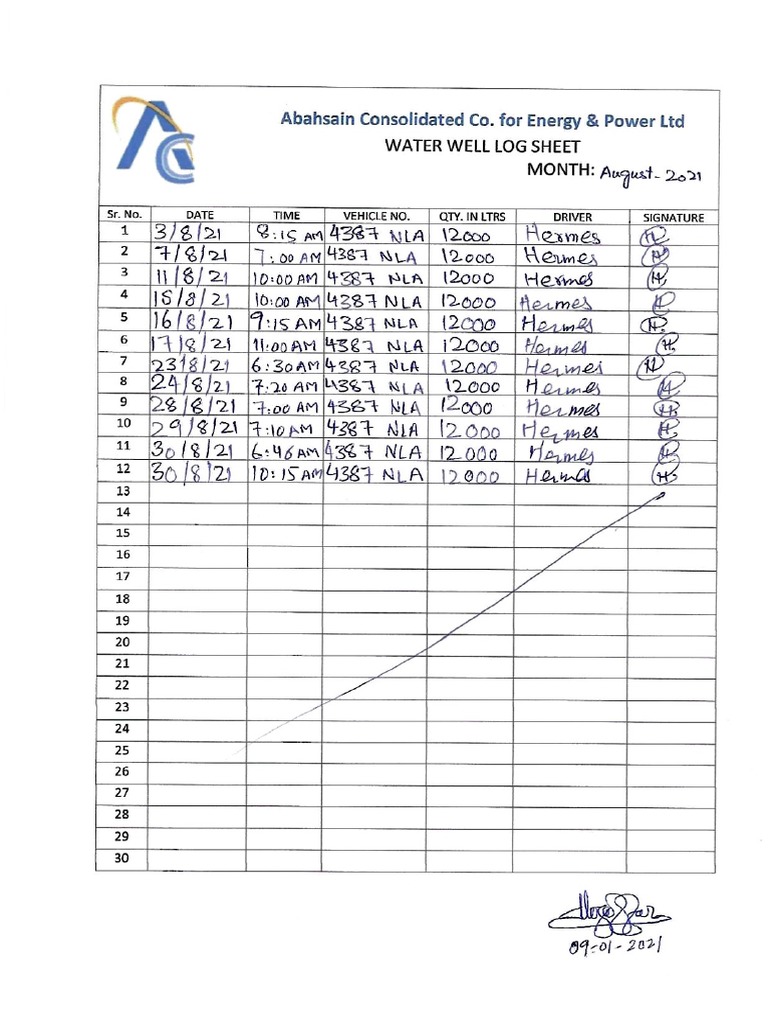 AC
Abahsain Consolidated Co. for Energy & Power Ltd
WATER WELL LOG SHEET
MONTH: August-2021
Sr. No. DATE TIME VEHICLE NO. QTY. IN LTRS DRIVER SIGNATURE
1 3/8/21 8:15 AM 4387 NLA 12000 Hermes H
2 7/8/21 7:00 AM 4387 NLA 12000 Hermes H
3 11/8/21 10:00 AM 4387 NLA 12000 Hermes H.
4 15/8/21 10:00 AM 4387 NLA 12000 Hermes H
5 16/8/21 9:15 AM 4387 NLA 12000 Hermes H.
6 17/8/21 11:00 AM 4387 NLA 12000 Hermes H.
7 23/8/21 6:30 AM 4387 NLA 12000 Hermes H
8 24/8/21 7:20 AM 4387 NLA 12000 Hermes H
9 28/8/21 7:00 AM 4387 NLA 12000 Hermes H.
10 29/8/21 7:10 AM 4387 NLA 12000 Hermes H
11 30/8/21 6:46 AM 4387 NLA 12000 Hermes H
12 30/8/21 10:15 AM 4387 NLA 12000 Hermes H.
13
14
15
16
17
18
19
20
21
22
23
24
25
26
27
28
29
30
09-01-2021